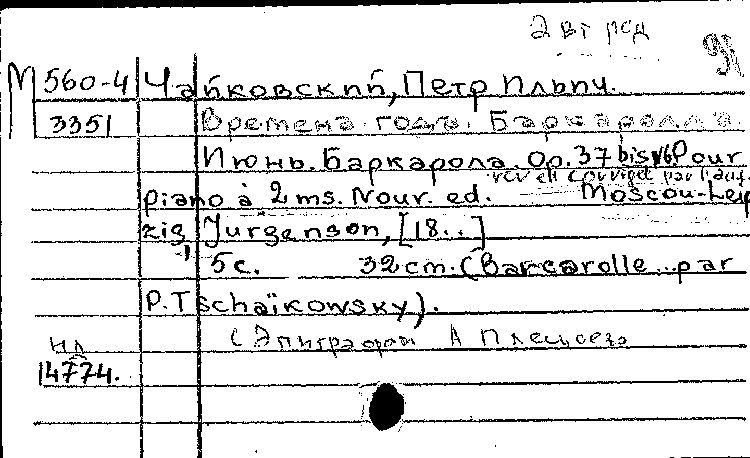 2 авт ред
М 560-4 Чайковский, Петр Ильич.
3351 Времена года. Баркаролла.
Июнь. Баркарола. Op. 37 bis №6 Pour
rev et corrigée par l'aut.
piano à 2 ms. Nouv. ed. Moscou-Leip
zig, Jurgenson, [18..]
5 с. 32 cm. (Barcarolle .. par
P. Tschaïkowsky).
(Эпиграф А Плещеева
нл
14774.